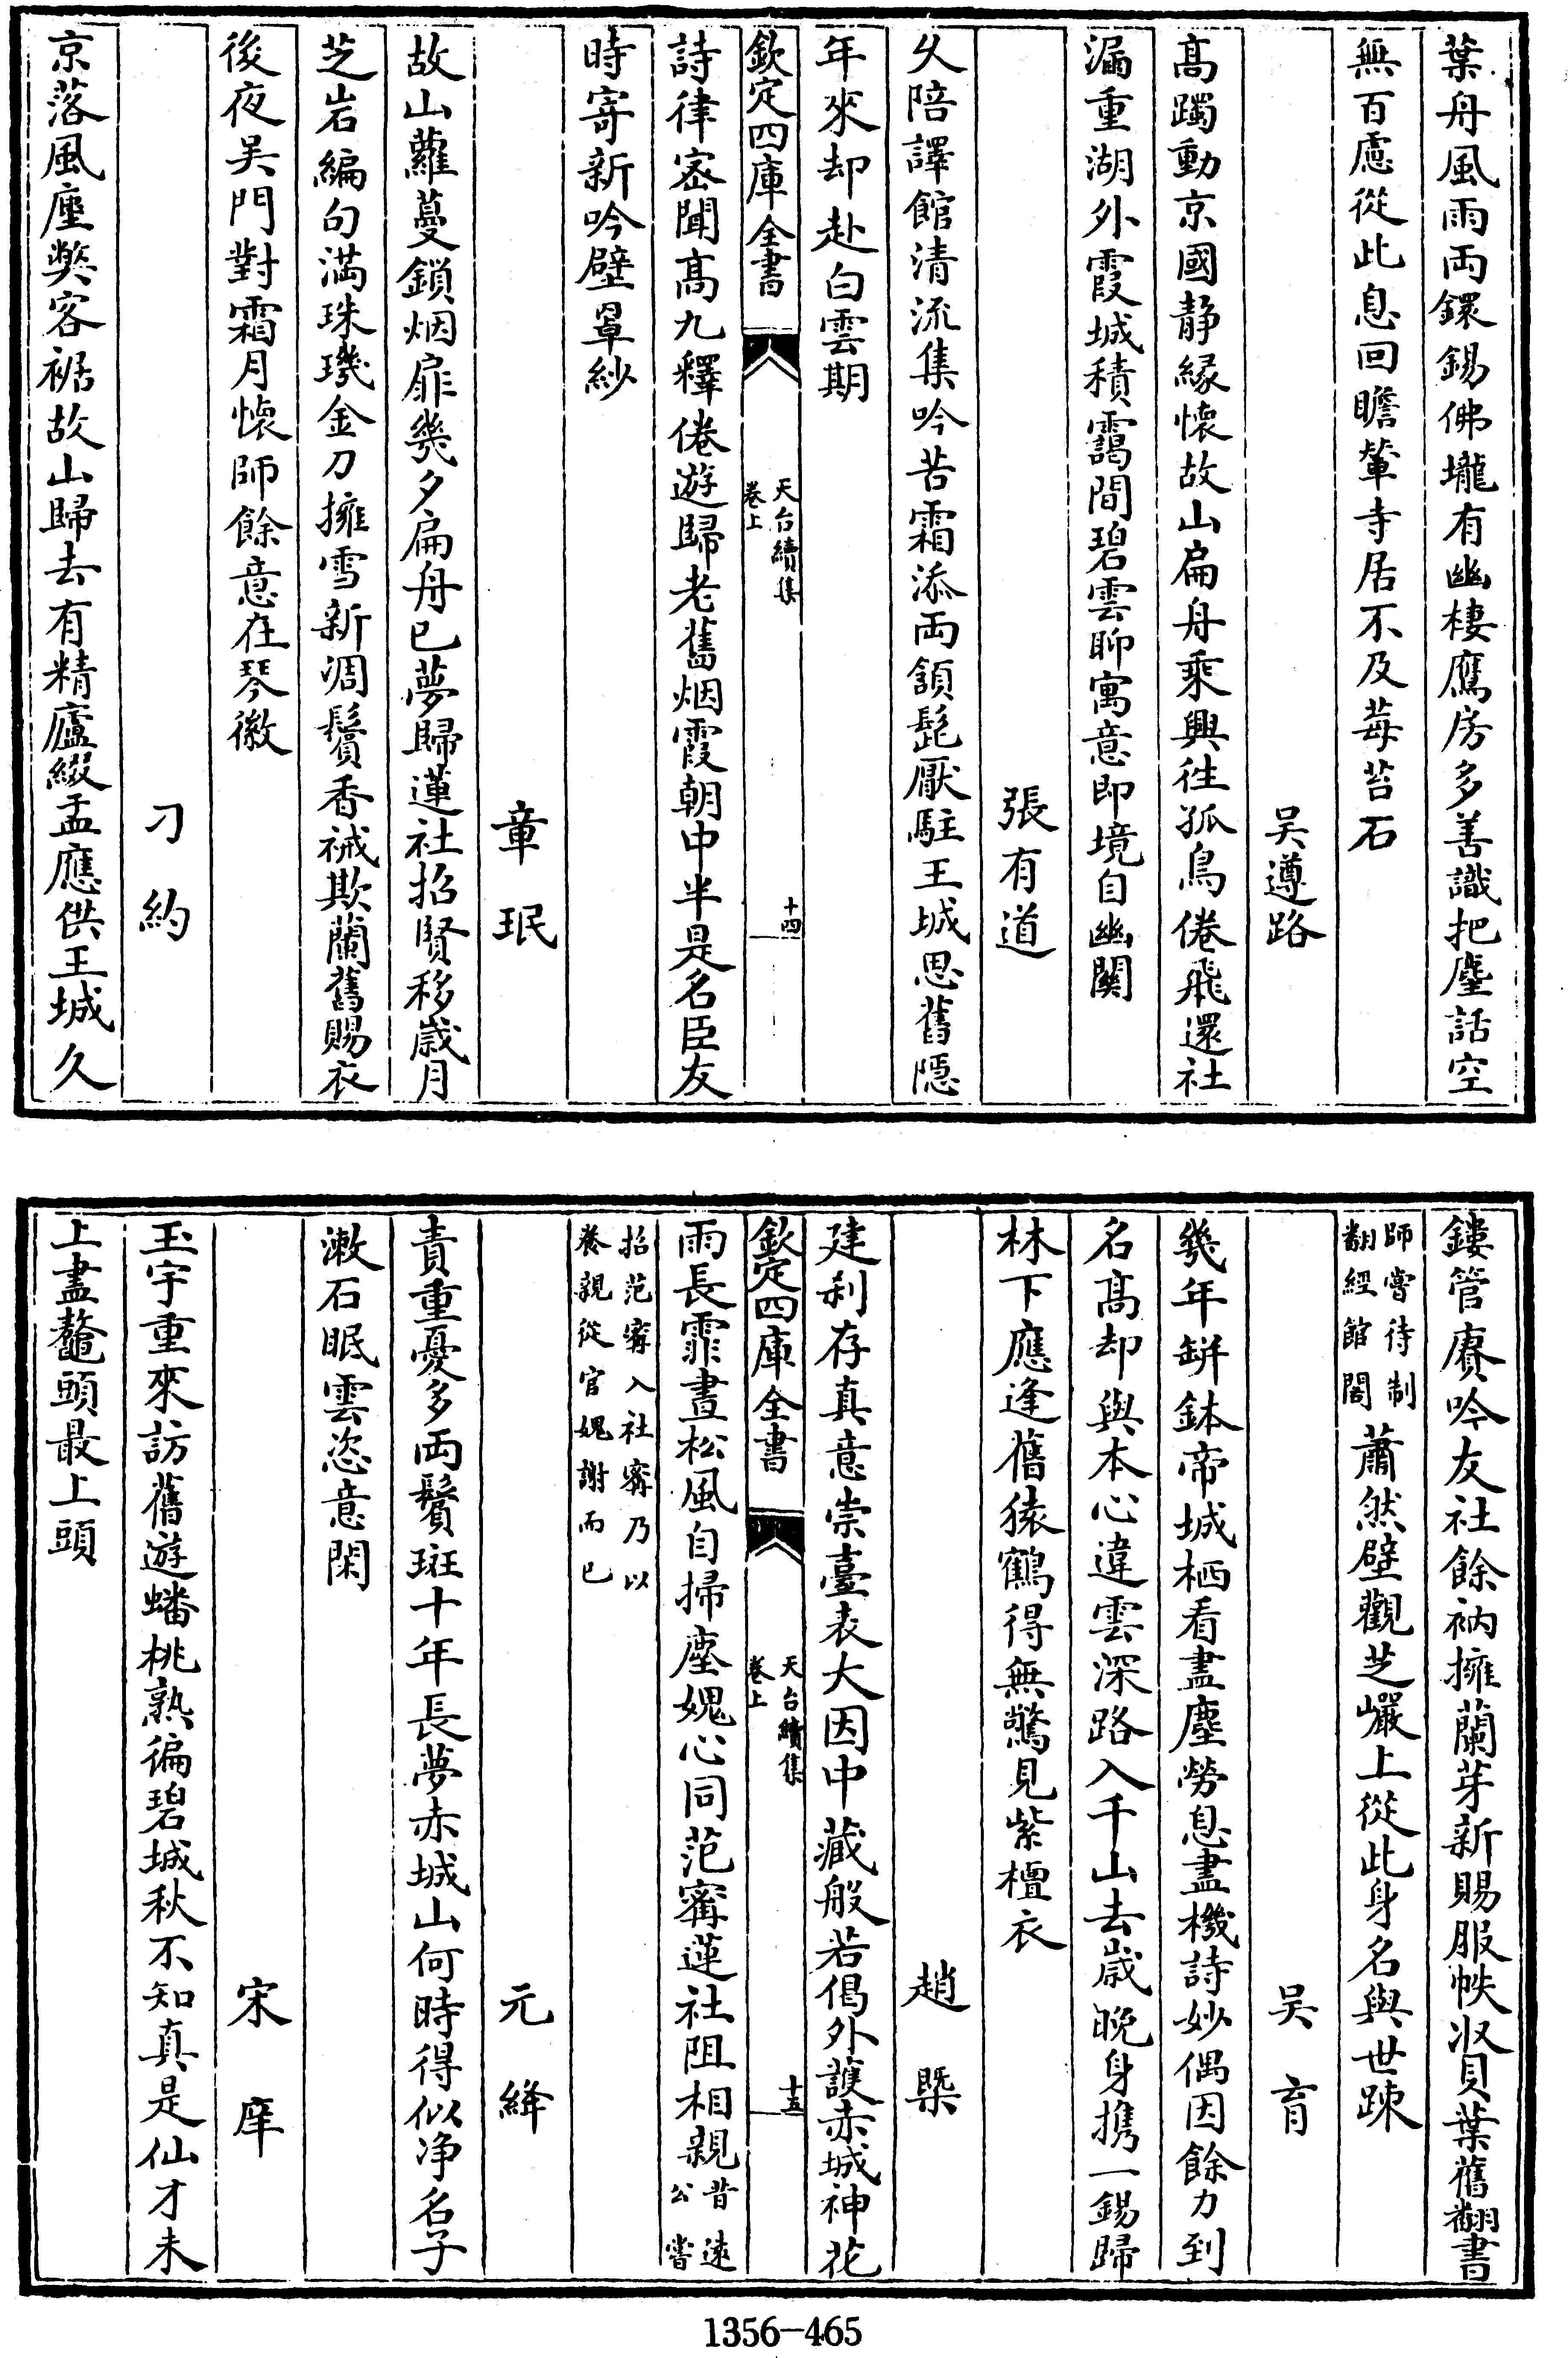 葉舟風雨両鐶錫佛壠有幽棲鷹房多善識把麈話空
無百慮從此息回瞻輦寺居不及莓苔石
吳遵路
髙躅動京國静縁懐故山扁舟乘興徃孤鳥倦飛還社
漏重湖外霞城積靄間碧雲聊寓意即境自幽闗
張有道
乆陪譯館清流集吟苦霜添両頷髭厭駐王城思舊隠
年來却赴白雲期
欽定四庫全書
天台續集
卷上
十四
詩律宻聞髙九釋倦遊歸老舊烟霞朝中半是名臣友
時寄新吟壁罩紗
章珉
故山蘿蔓鎖烟扉幾夕扁舟已夢歸蓮社招賢移歳月
芝岩編句滿珠璣金刀擁雪新凋鬢香祴欺蘭舊賜衣
後夜吳門對霜月懐師餘意在琴徽
刁約
京落風塵獘客裾故山歸去有精廬綴盂應供王城久
鏤管賡吟友社餘衲擁蘭芽新賜服帙收貝葉舊翻書
師嘗待制
翻經館閣
蕭然壁觀芝巖上從此身名與世踈
吳育
幾年缾鉢帝城栖看盡塵勞息盡機詩妙偶因餘力到
名髙却與本心違雲深路入千山去歳晚身擕一錫歸
林下應逢舊猿鶴得無驚見紫檀衣
趙槩
建刹存真意崇臺表大因中藏般若偈外護赤城神花
欽定四庫全書
天台續集
卷上
十五
雨長霏晝松風自掃塵媿心同范寗蓮社阻相親
昔逺
公嘗
招范寗入社寗乃以
養親從官媿謝而已
元絳
責重憂多両鬢斑十年長夢赤城山何時得似浄名子
漱石眠雲恣意閑
宋庠
玉宇重來訪舊遊蟠桃熟徧碧城秋不知真是仙才未
上盡鼇頭最上頭
1356-465